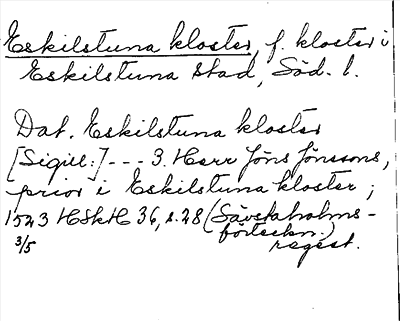 Eskilstuna kloster, f. kloster i
Eskilstuna stad, Söd. l.
Dat. Eskilstuna kloster
[Sigill:] - - - 3. Herr Jöns Jönssons,
prior i Eskilstuna kloster ;
1523 HSkH 36, s. 28 (Sävstaholms-
3/5 förteckn.)
regest.